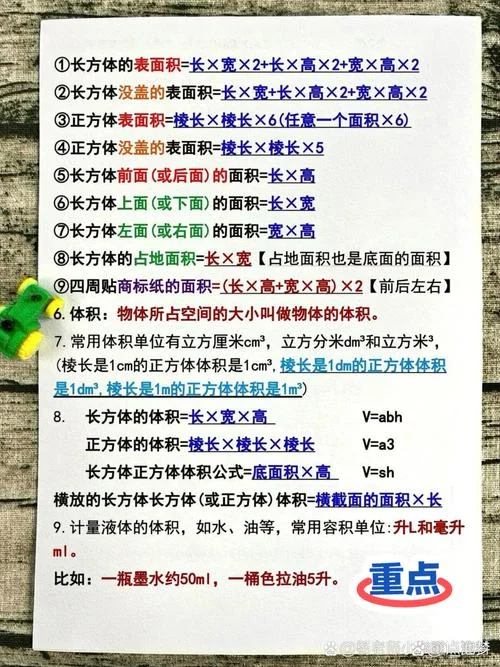 ①长方体的表面积=长×宽×2+长×高×2+宽×高×2
②长方体没盖的表面积=长×宽+长×高×2+宽×高×2
③正方体表面积=棱长×棱长×6(任意一个面积×6)
④正方体没盖的表面积=棱长×棱长×5
⑤长方体前面(或后面)的面积=长×高
⑥长方体上面(或下面)的面积=长×宽
⑦长方体左面(或右面)的面积=宽×高
⑧长方体的占地面积=长×宽【占地面积也是底面的面积】
⑨四周贴商标纸的面积=(长×高+宽×高)×2【前后左右】
6. 体积：物体所占空间的大小叫做物体的体积。
7. 常用体积单位有立方厘米cm³，立方分米dm³和立方米³，
(棱长是1cm的正方体体积是1cm³,棱长是1dm的正方体体积
是1dm³,棱长是1m的正方体体积是1m³)
8. 长方体的体积=长×宽×高 V=abh
正方体的体积=棱长×棱长×棱长 V=a3
长方体正方体体积公式=底面积×高 V=sh
横放的长方体长方体(或正方体)体积=横截面的面积×长
9. 计量液体的体积，如水、油等，常用容积单位:升L和毫升
ml。
比如：一瓶墨水约50ml，一桶色拉油5升。
重点